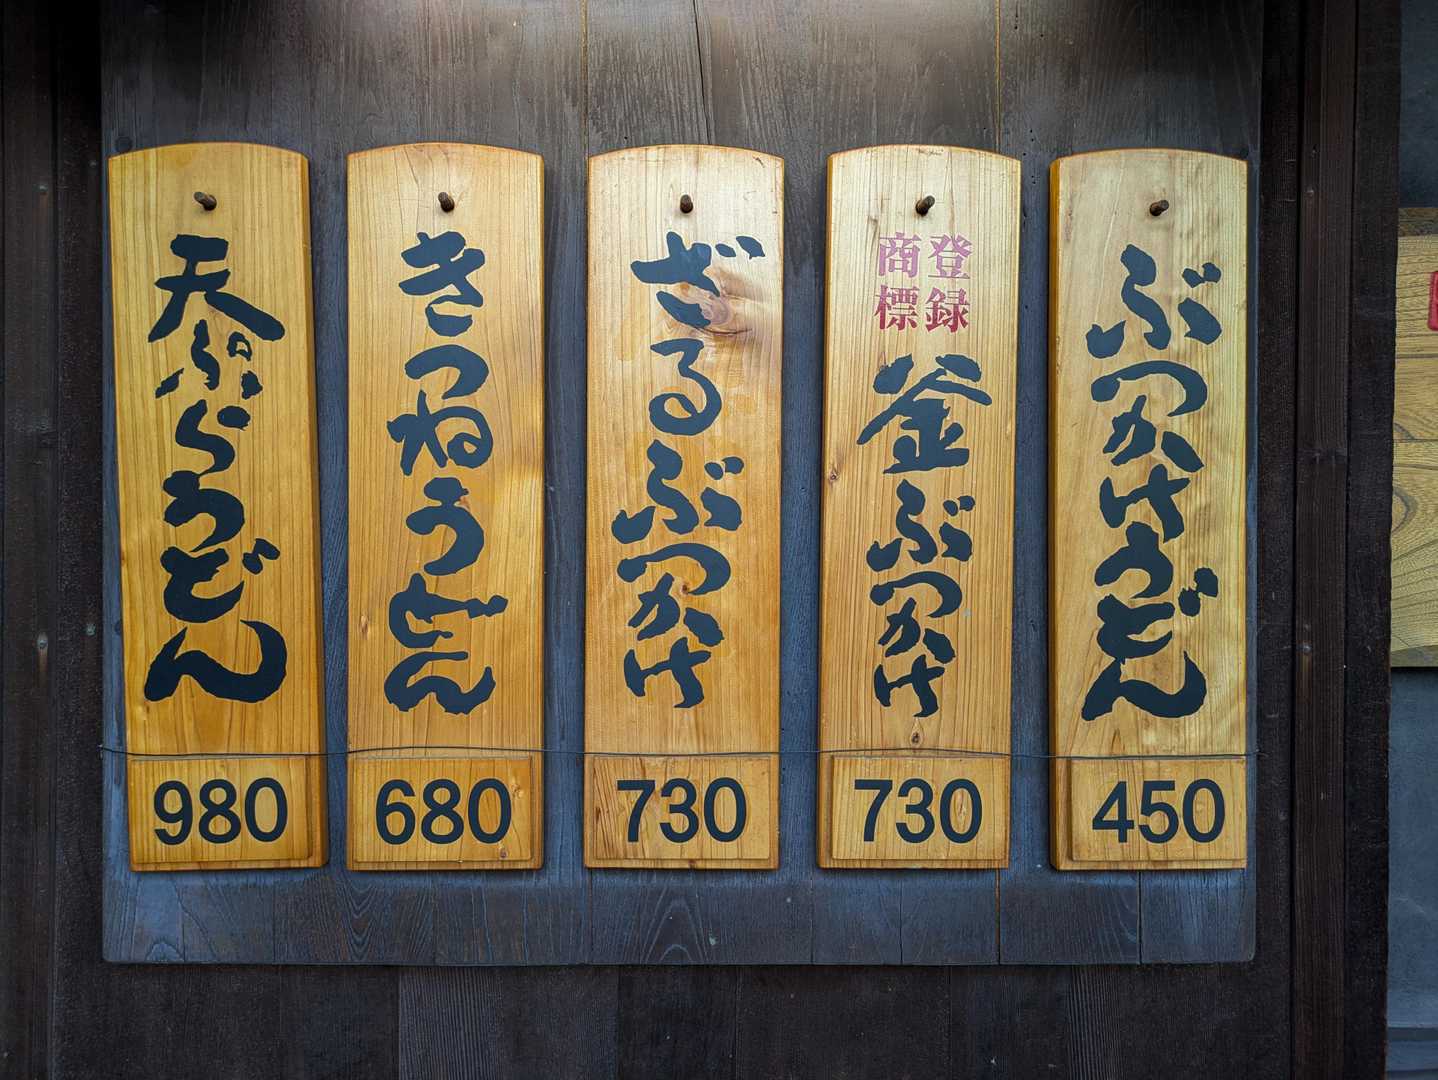 ぶっかけうどん
450
登録
商標
釜ぶっかけ
730
ざるぶっかけ
730
きつねうどん
680
天ぷらうどん
980